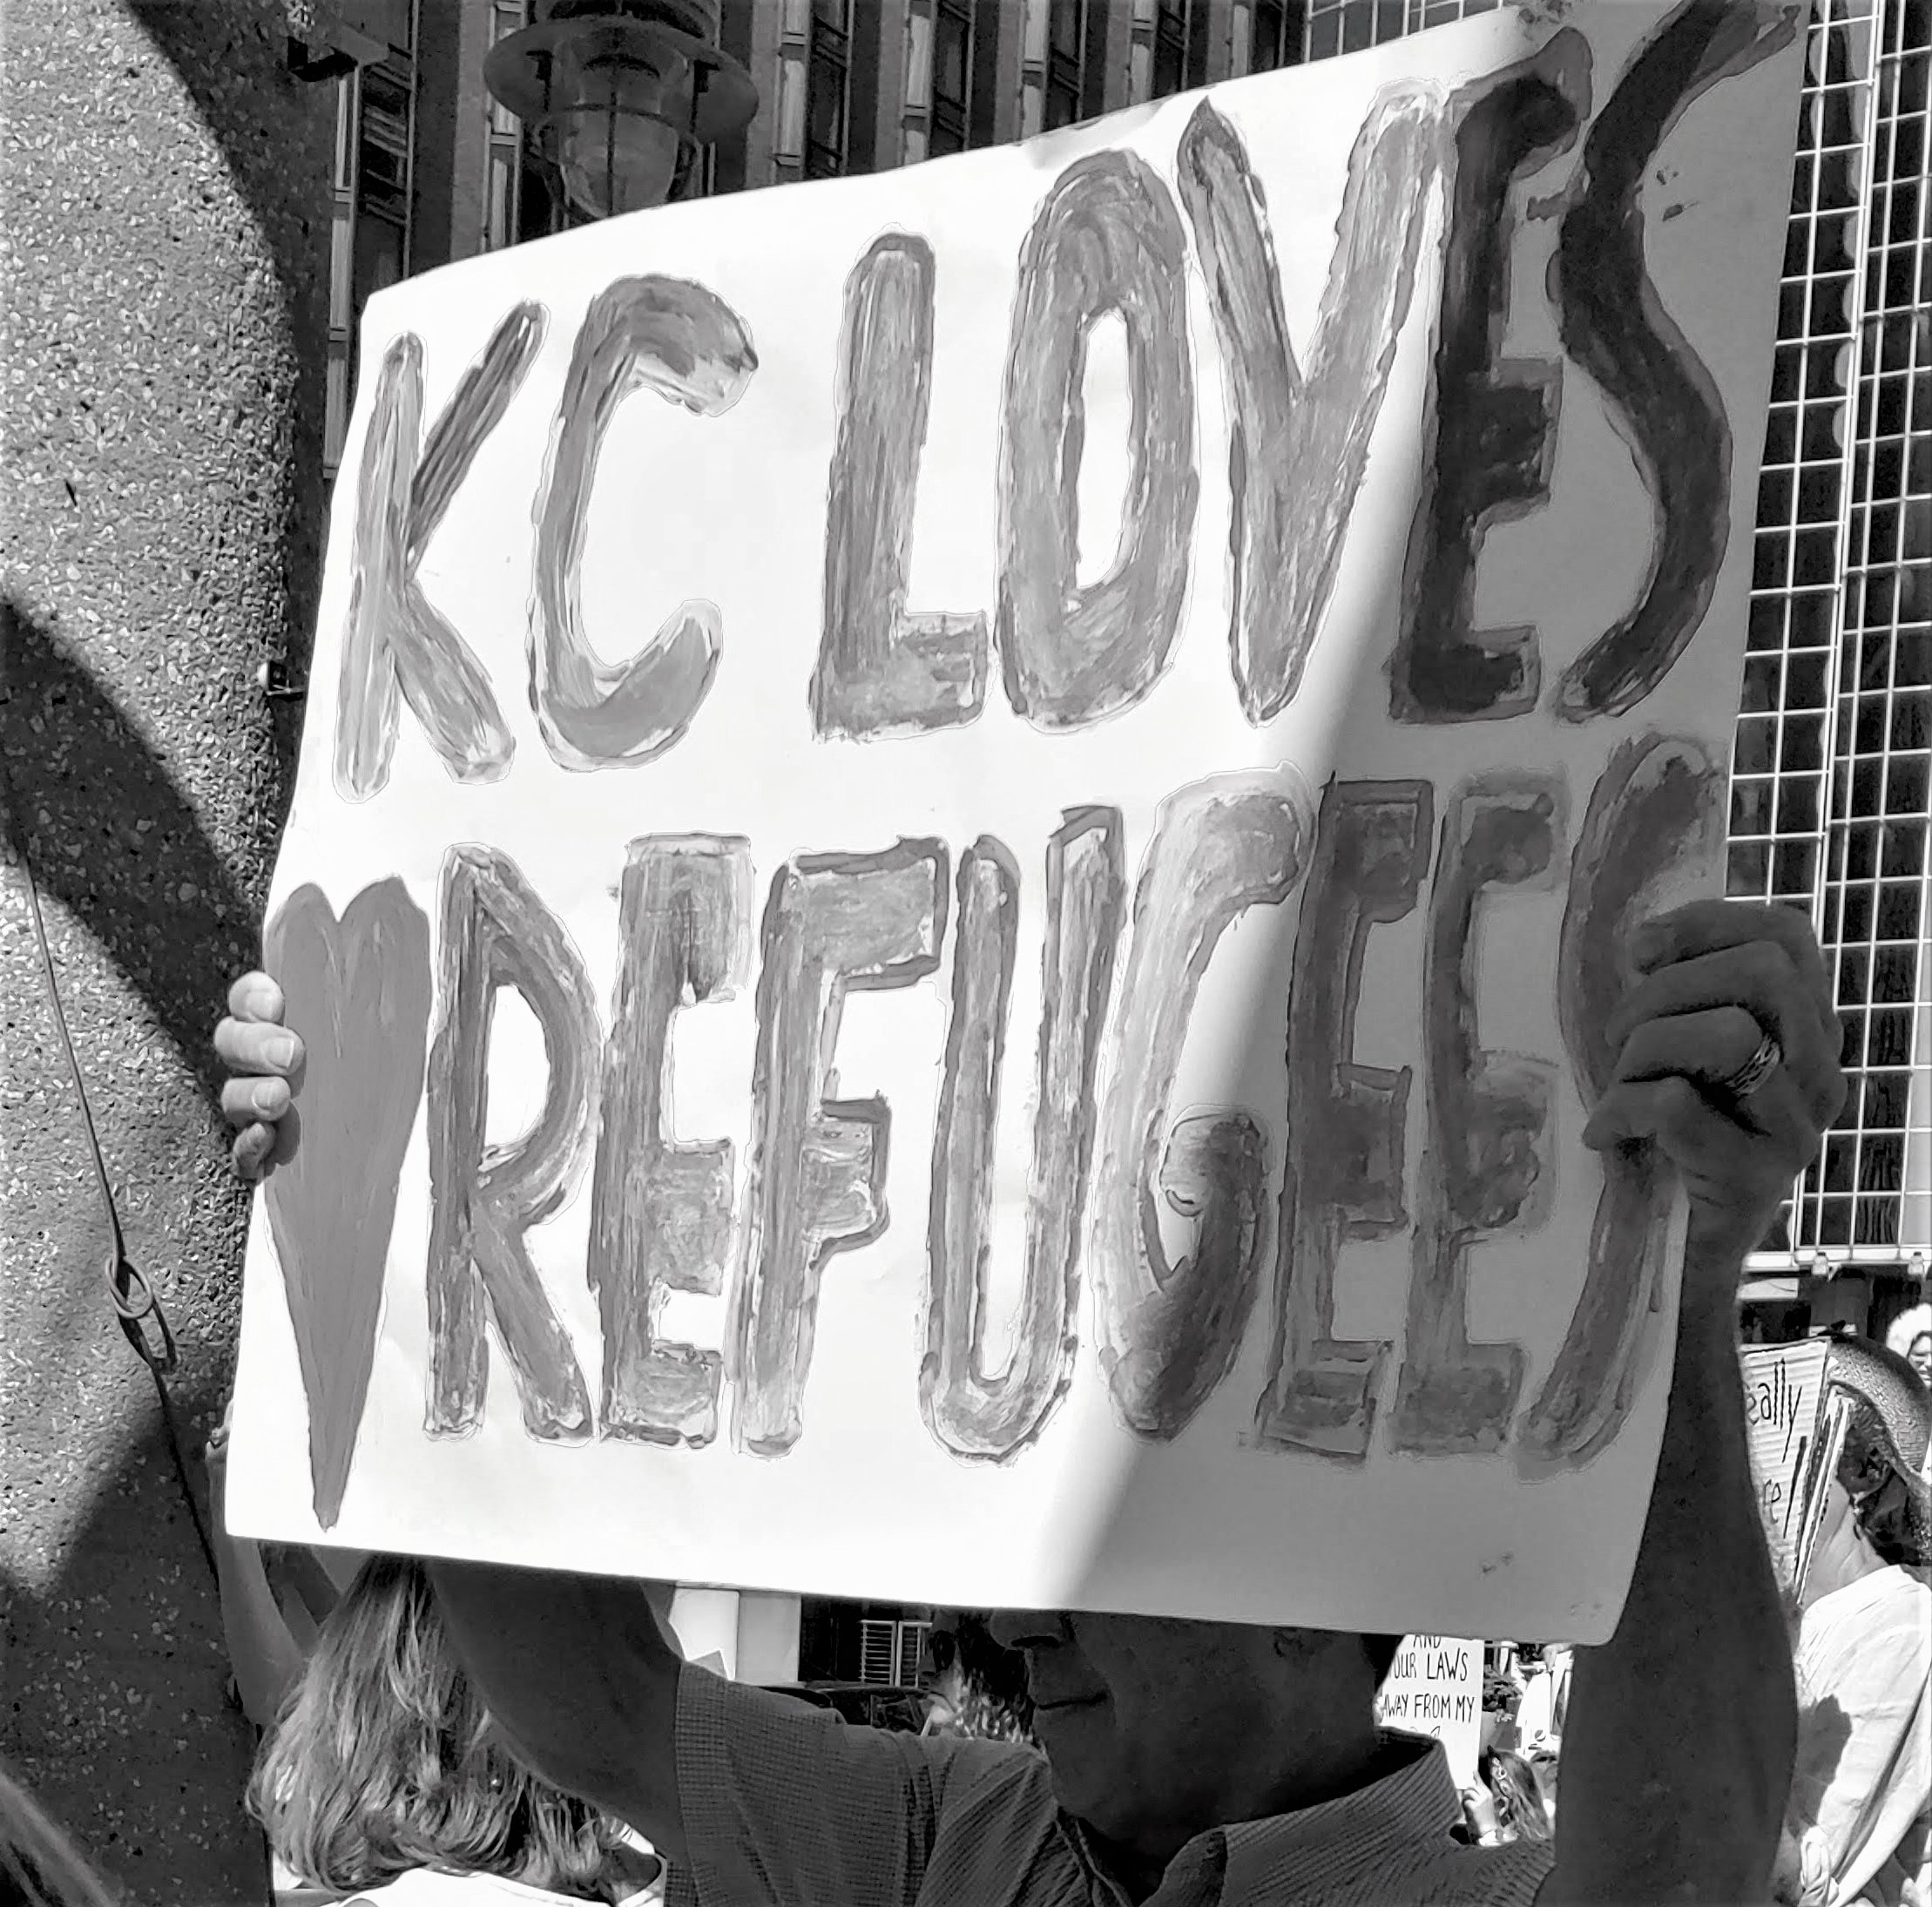 KC LOVES
REFUGEES
AND
OUR LAWS
AWAY FROM MY